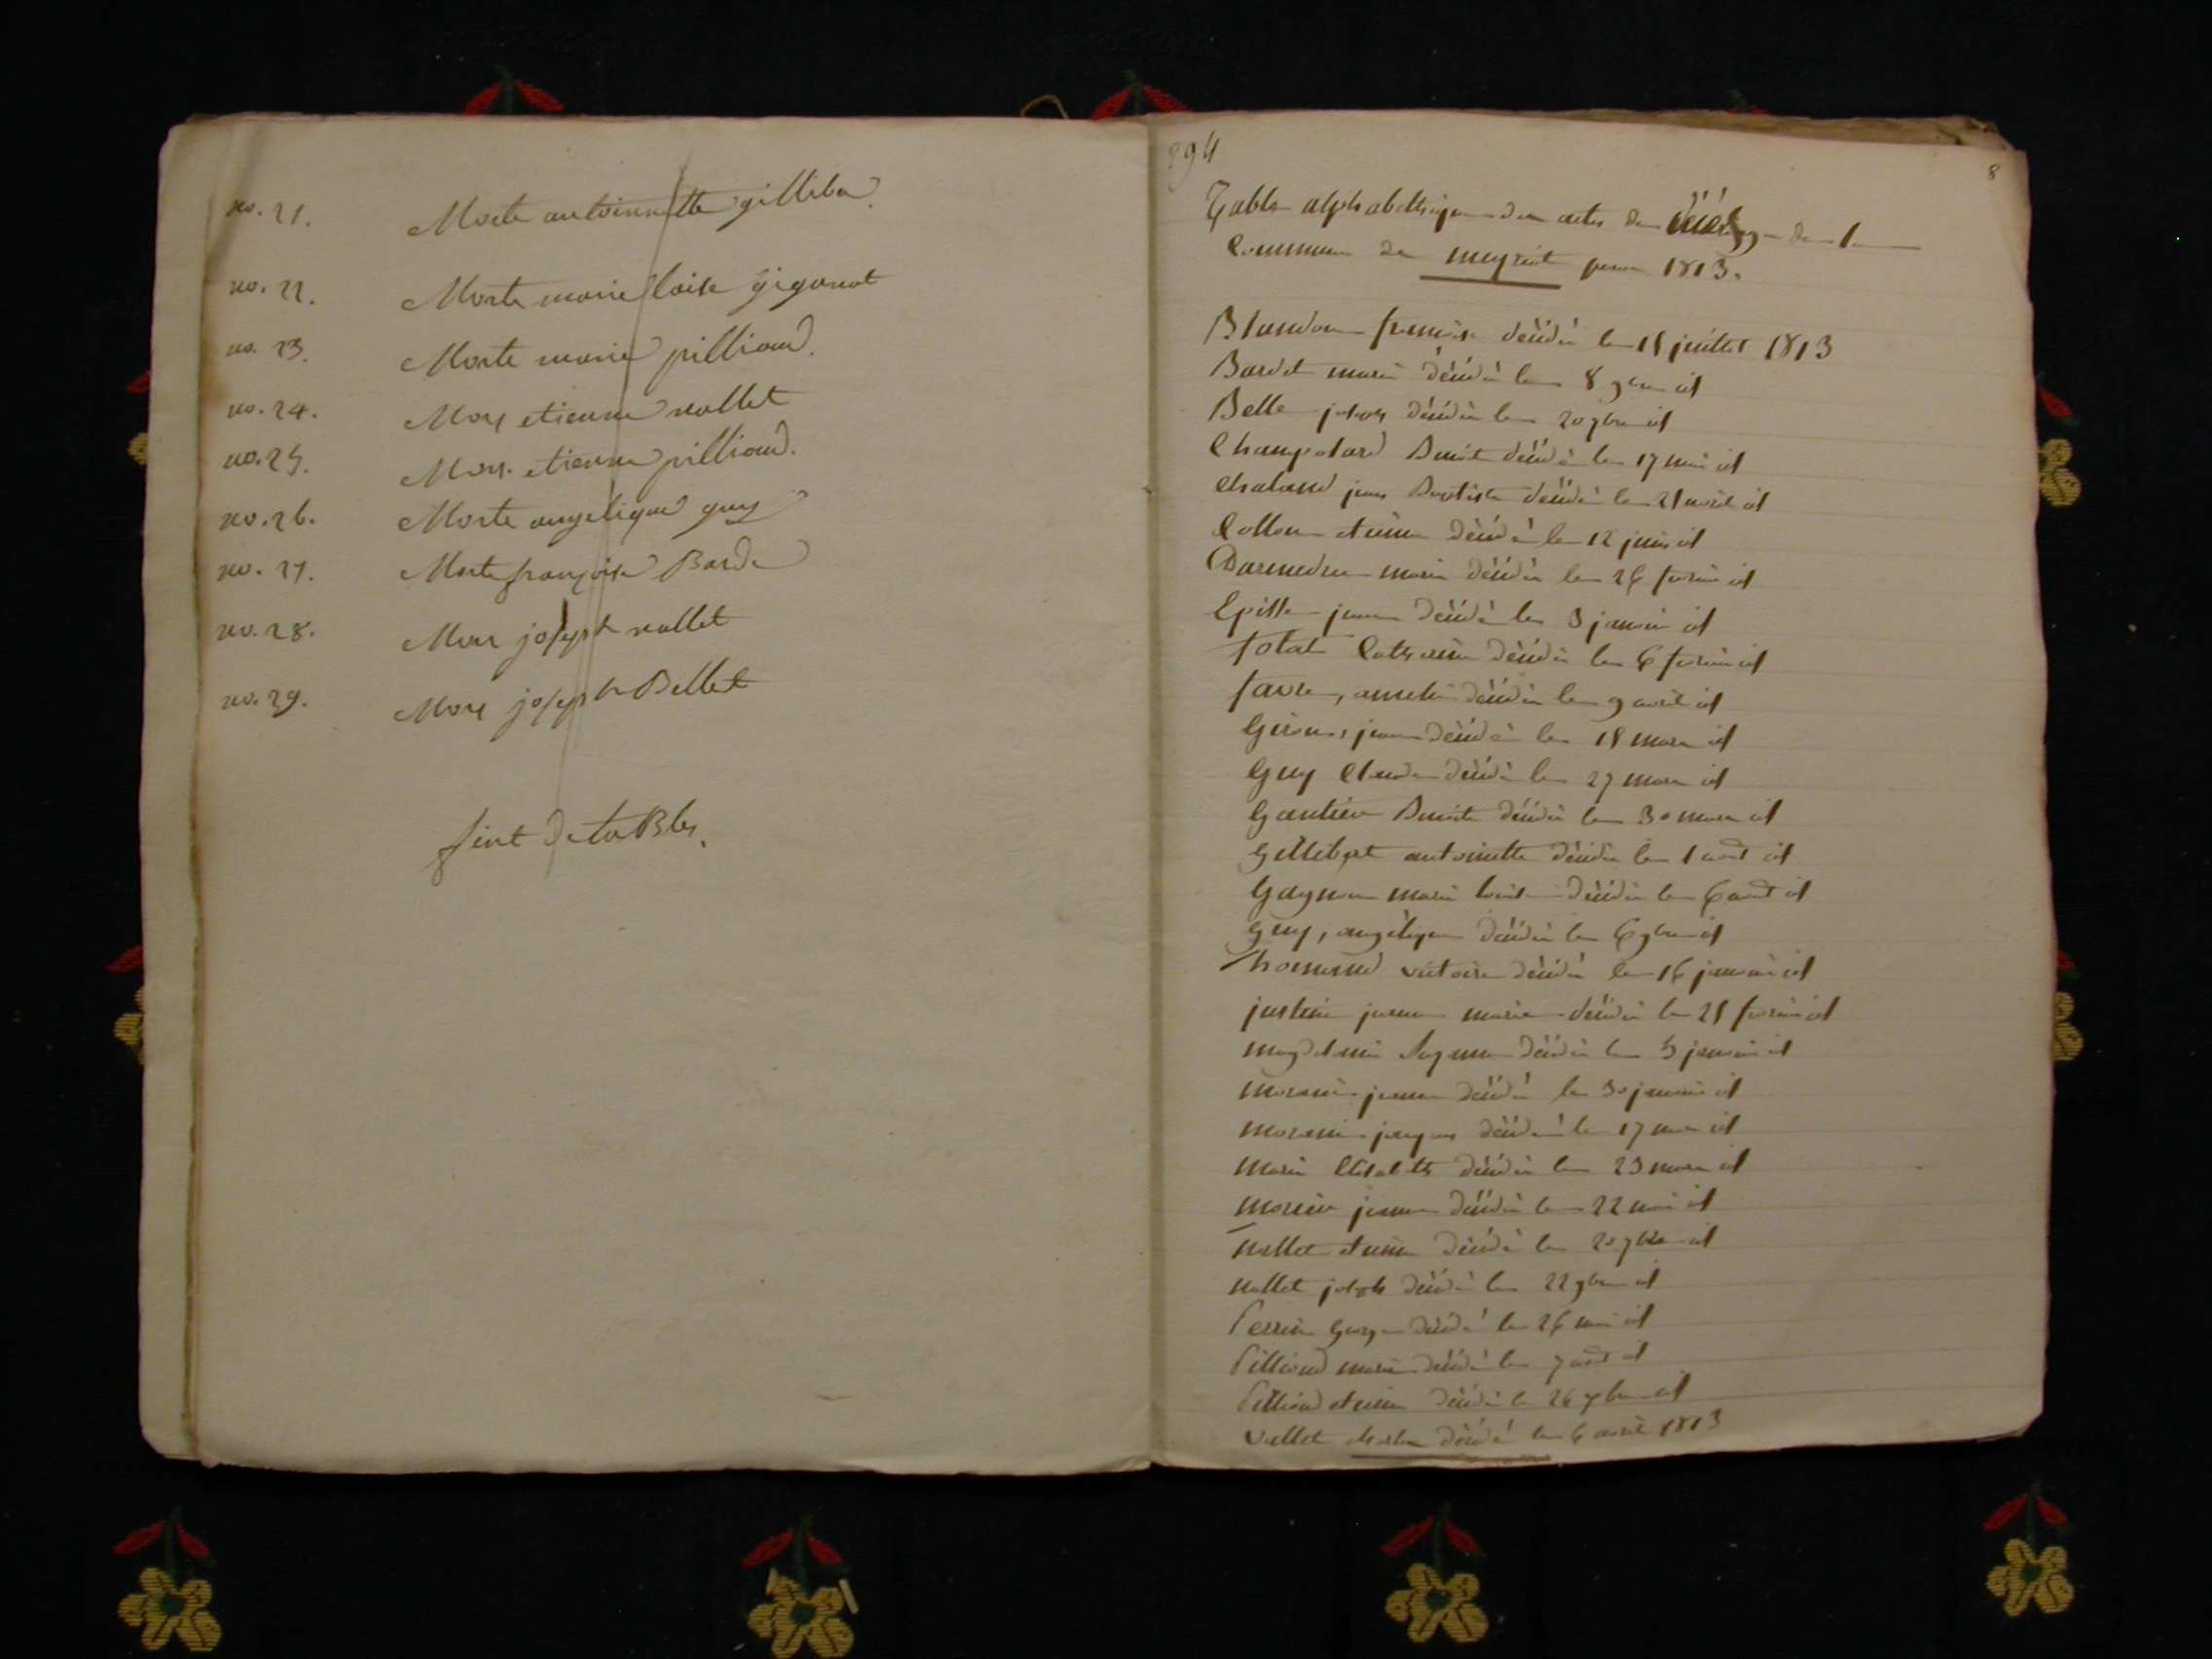 no. 21. Morte antoinette gilliba
no. 22. Morte marie loise gigonot
no. 23. Morte marie pillioud.
no. 24. Mor etienne nallet
no. 25. Mor etienne pillioud.
no. 26. Morte angelique guy
no. 27. Morte françoise Barde
no. 28. Mor joseph nallet
no. 29. Mor joseph Bellet
fint de taBles.
394
8
Table alphabettique des actes de décès de la
Commune de meyriat pour 1813.
Blandon françoise décédée le 15 juillet 1813
Bardet marie décédée le 8 9bre id
Belle joseph décédé le 20 9bre id
Champatard Benoit décédé le 17 mai id
chaland jean Baptiste décédé le 21 avril id
Collon etienne décédé le 12 juin id
marie décédée le 26 fevrier id
décédé le 3 janvier id
Catherine décédée le 6 fevrier id
favre, décédée le 9 avril id
décédé le 18 mars id
Guy Claude décédé le 27 mars id
Gautier Benoite décédée le 30 mars id
Gillibert antoinette décédée le 1 août id
Gagnon marie louise décédée le 6 août id
Guy, angélique décédée le 6 9bre id
victoire décédée le 16 janvier id
justine jeanne marie décédée le 25 fevrier id
décédée le 5 janvier id
décédé le 30 janvier id
jacques décédé le 17 id
Elisabeth décédée le 23 mars id
décédée le 22 mai id
nallet etienne décédé le 20 7bre id
nallet joseph décédé le 22 9bre id
Perrin George décédé le 26 mai id
Pillioud marie décédée le 7 août id
Pillioud etienne décédé le 26 7bre id
vallet décédé le 6 avril 1813